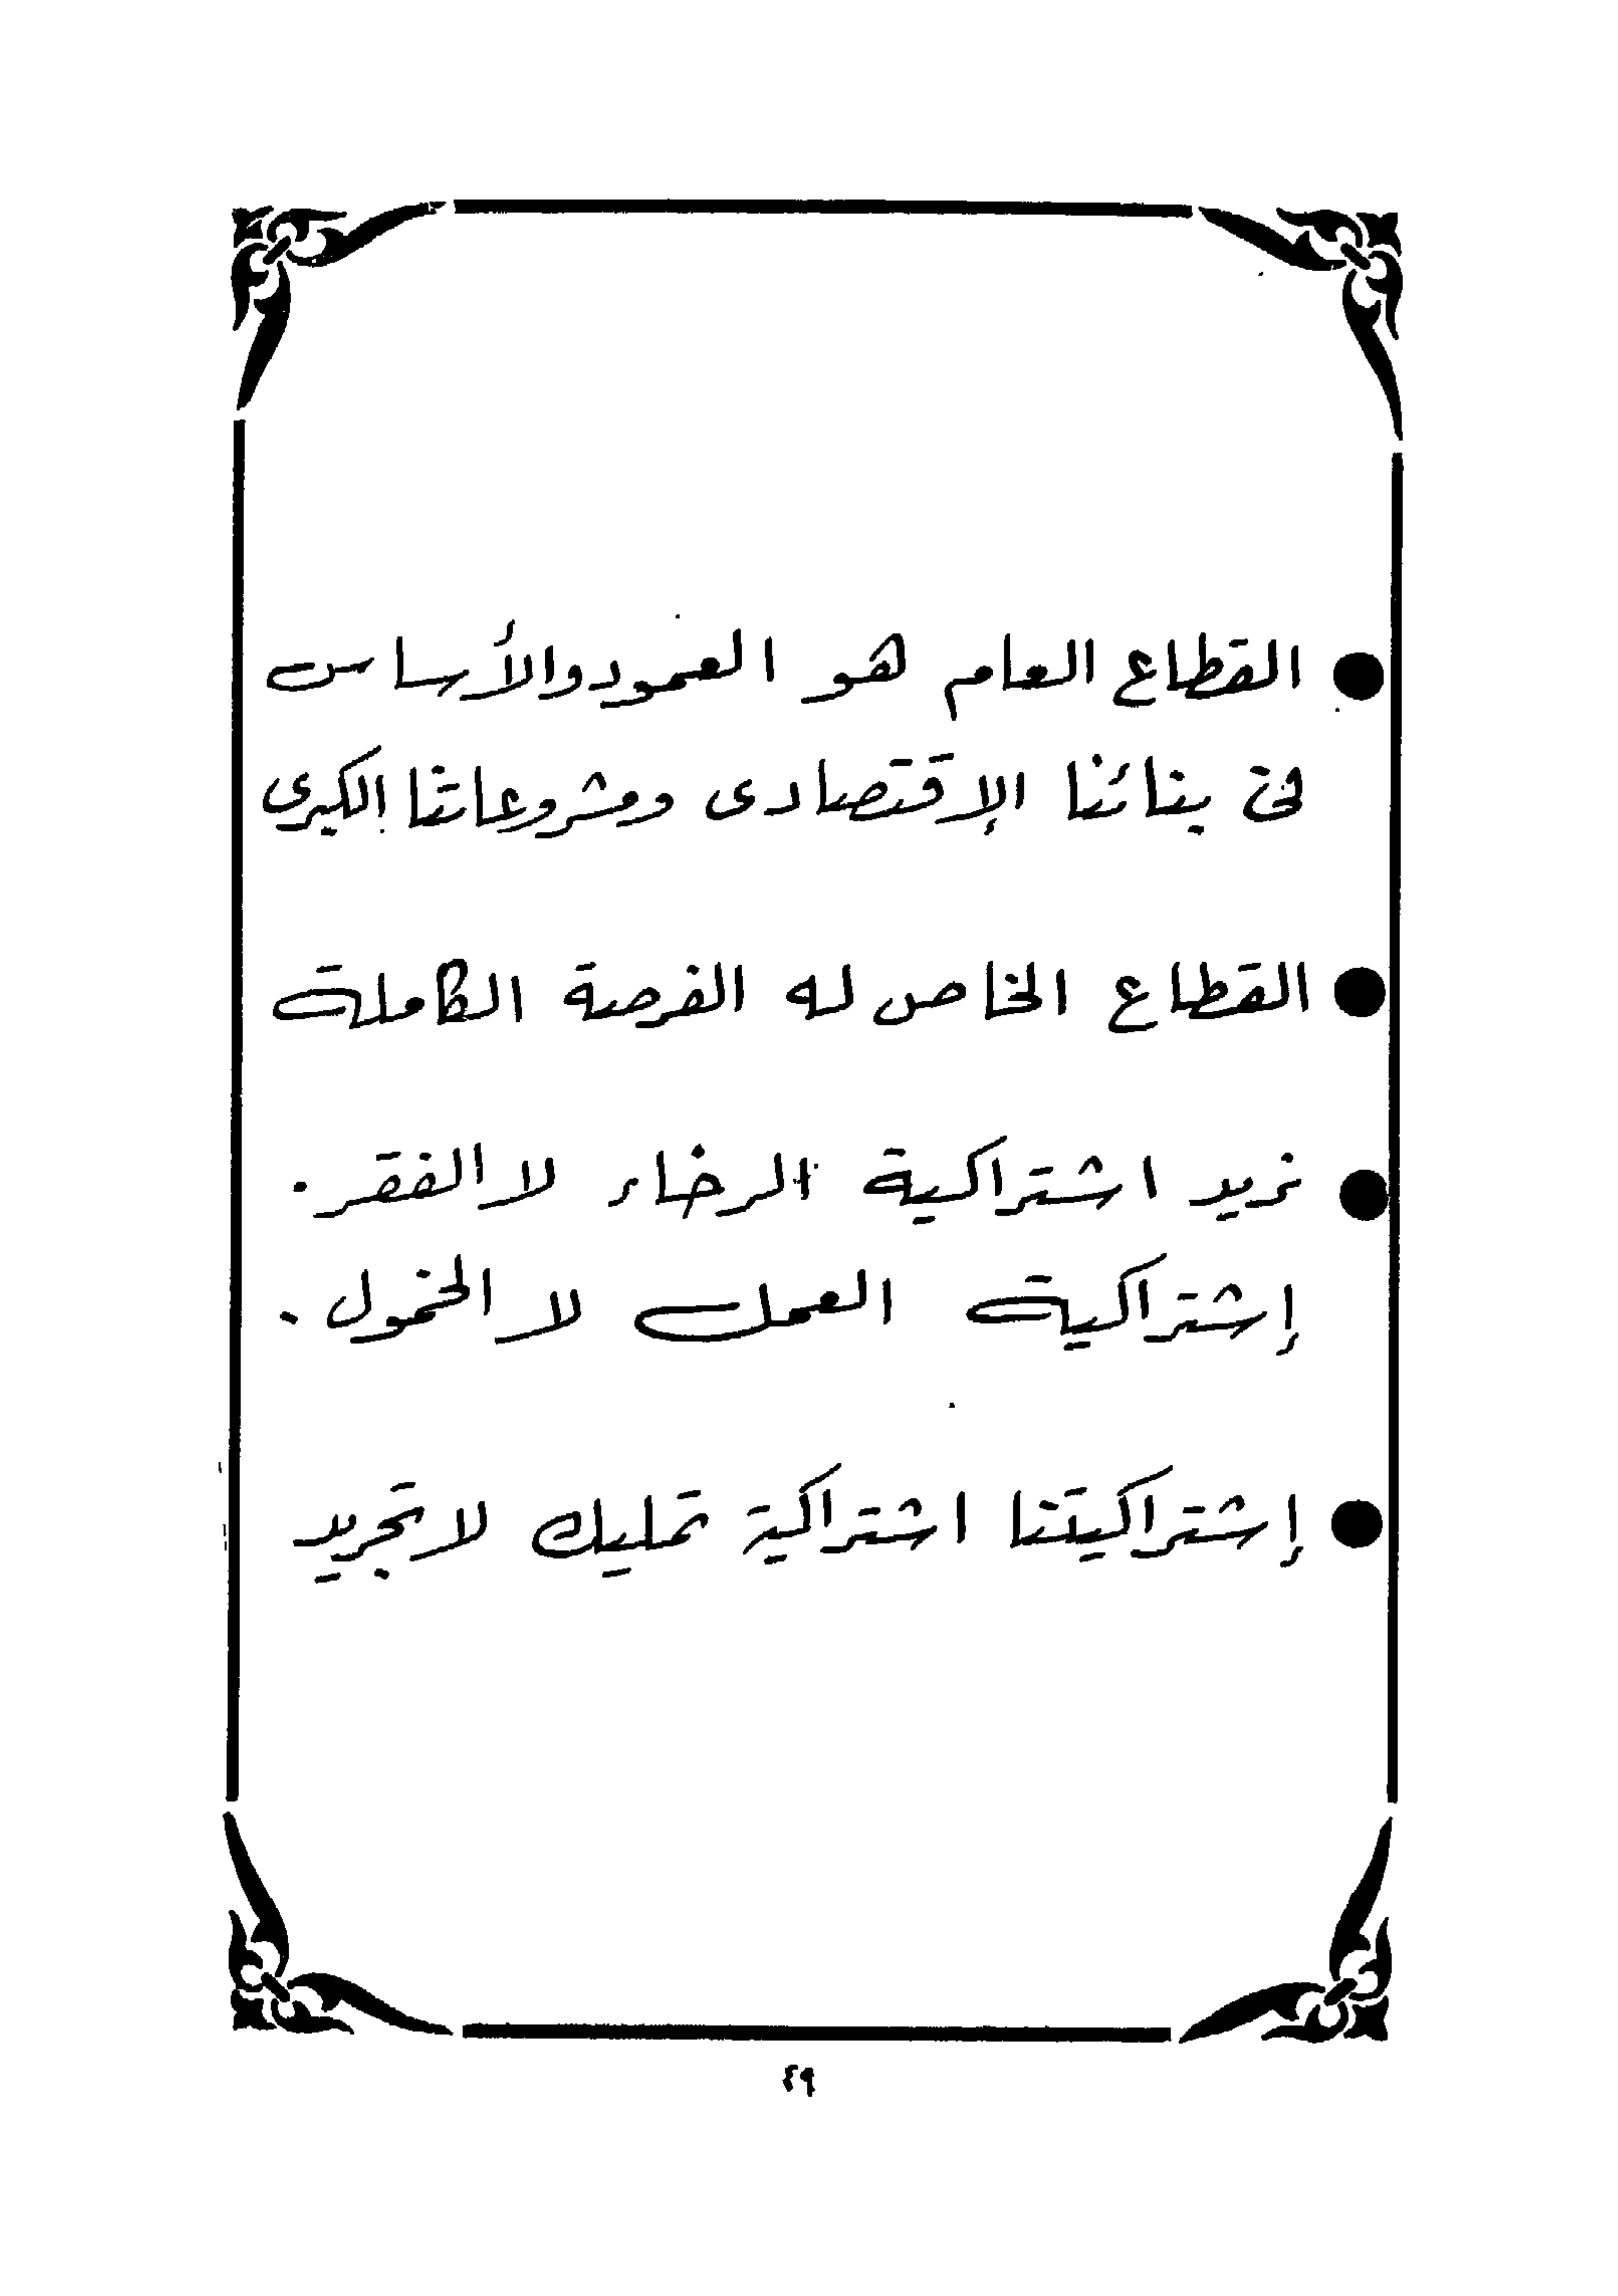 ● القطاع العام هو العمود والأساس
فى بنائنا الإقتصادى ومشروعاتنا الكبرى
● القطاع الخاص له الفرصة الكاملة
● نريد اشتراكية الرخاء لا الفقر .
إشتراكية العمل لا الخمول .
● إشتراكيتنا اشتراكية تمليك لا تجريد
٤٩